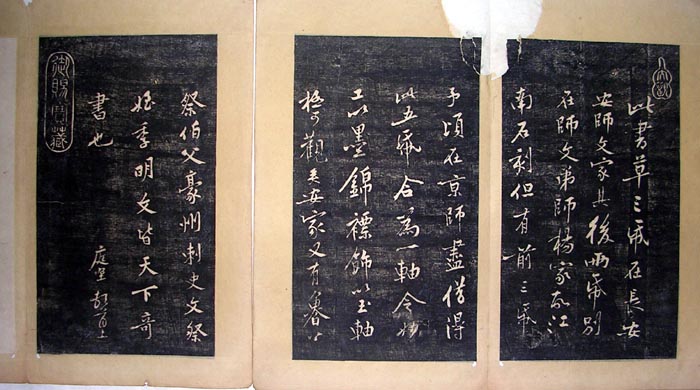 此書草三紙在長安
安師文家其後兩紙別
在師文弟師楊家故江
南石刻但有前三紙
予頃在京師盡借得
此五紙合為一軸令妙
工以墨錦褾飾以玉軸
極可觀矣安家又有魯公
祭伯父豪州刺史文祭
姪季明文皆天下奇
書也
庭堅
御賜寶藏